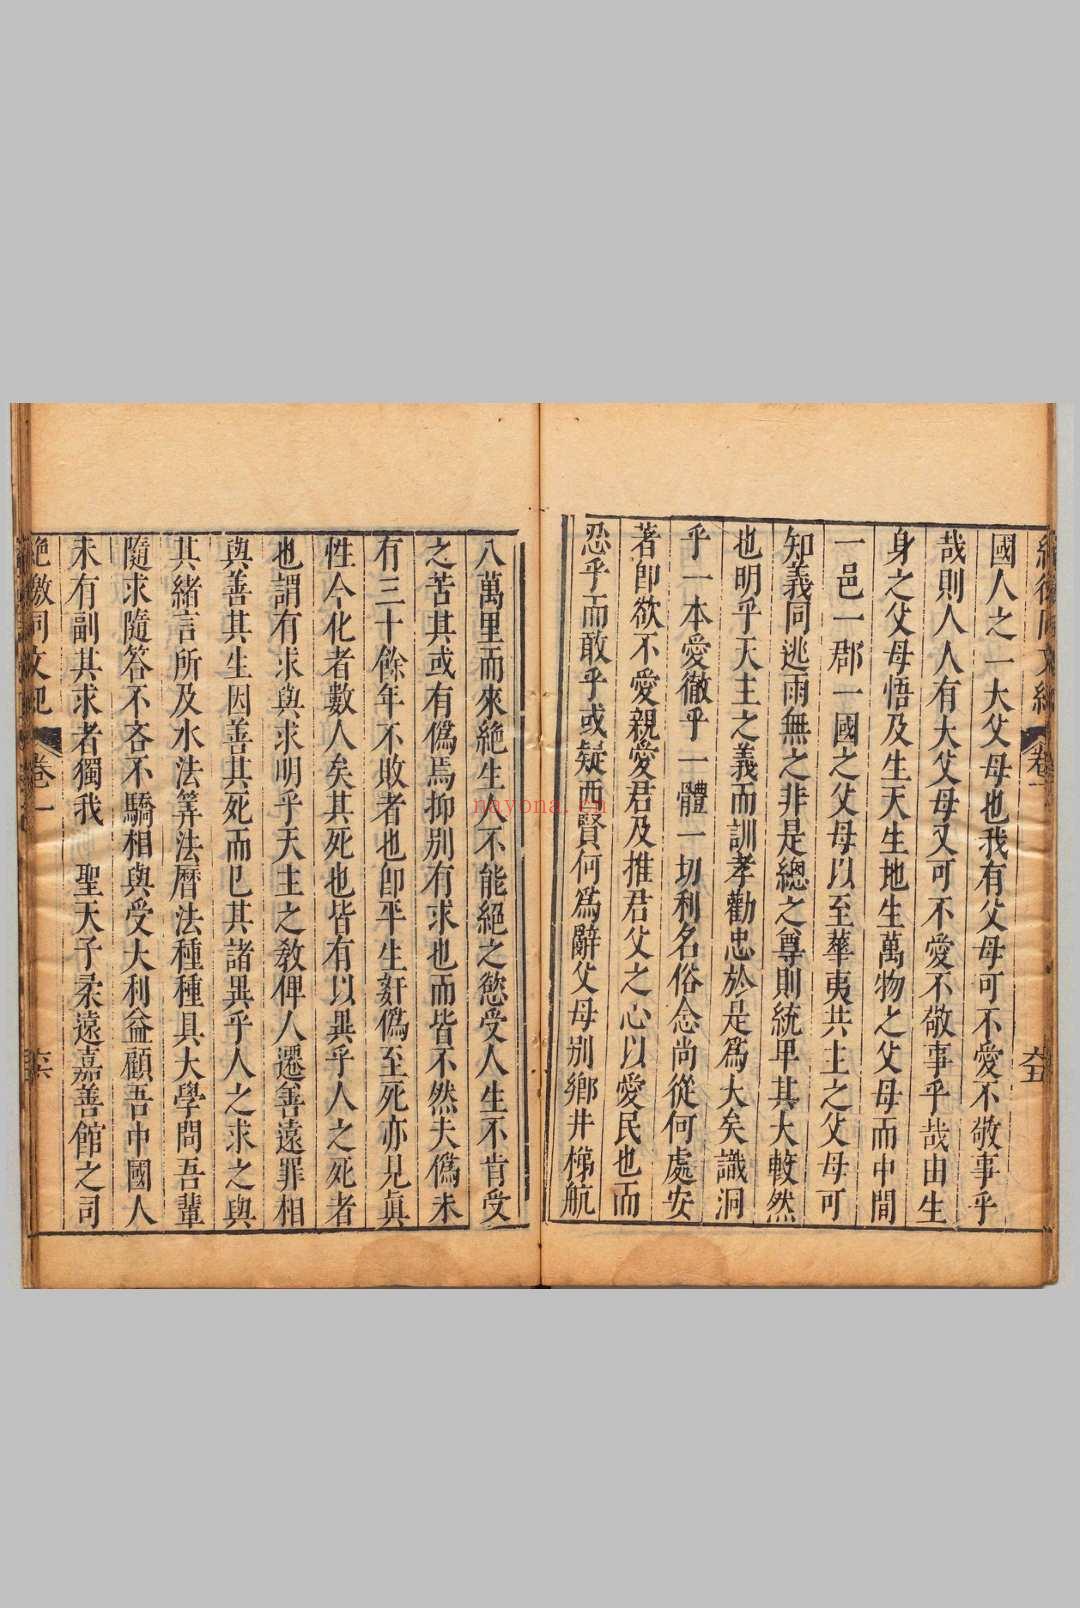 國人之一大父母也我有父母可不愛不敬事乎
哉則人人有大父母又可不愛不敬事乎哉由生
身之父母悟及生天生地生萬物之父母而中間
一邑一郡一國之父母以至華夷共主之父母可
知義同逃雨無之非是總之尊則統甲其大較然
也明乎天主之義而訓孝勸忠於是為大矣識洞
乎一本愛徹乎一體一切利名俗念尚從何處安
著即欲不愛親愛君及推君父之心以愛民也而
忍乎而敢乎或疑西賢何為辭父母別鄉井梯航
八萬里而來絶生人不能絕之慾受人生不肯受
之苦其或有偽焉抑别有求也而皆不然夫偽未
有三十餘年不敗者也卽平生姧偽至死亦見眞
性今化者數人矣其死也皆有以異乎人之死者
也謂有求與求明乎天主之教俾人遷善遠罪相
與善其生因善其死而已其諸異乎人之求之與
其緒言所及水法筭法曆法種種具大學問吾輩
隨求隨答不吝不驕相與受大利益顧吾中國人
未有副其求者獨我 聖天子柔遠嘉善館之司
絶徼同文紀 卷一
nayona.cn